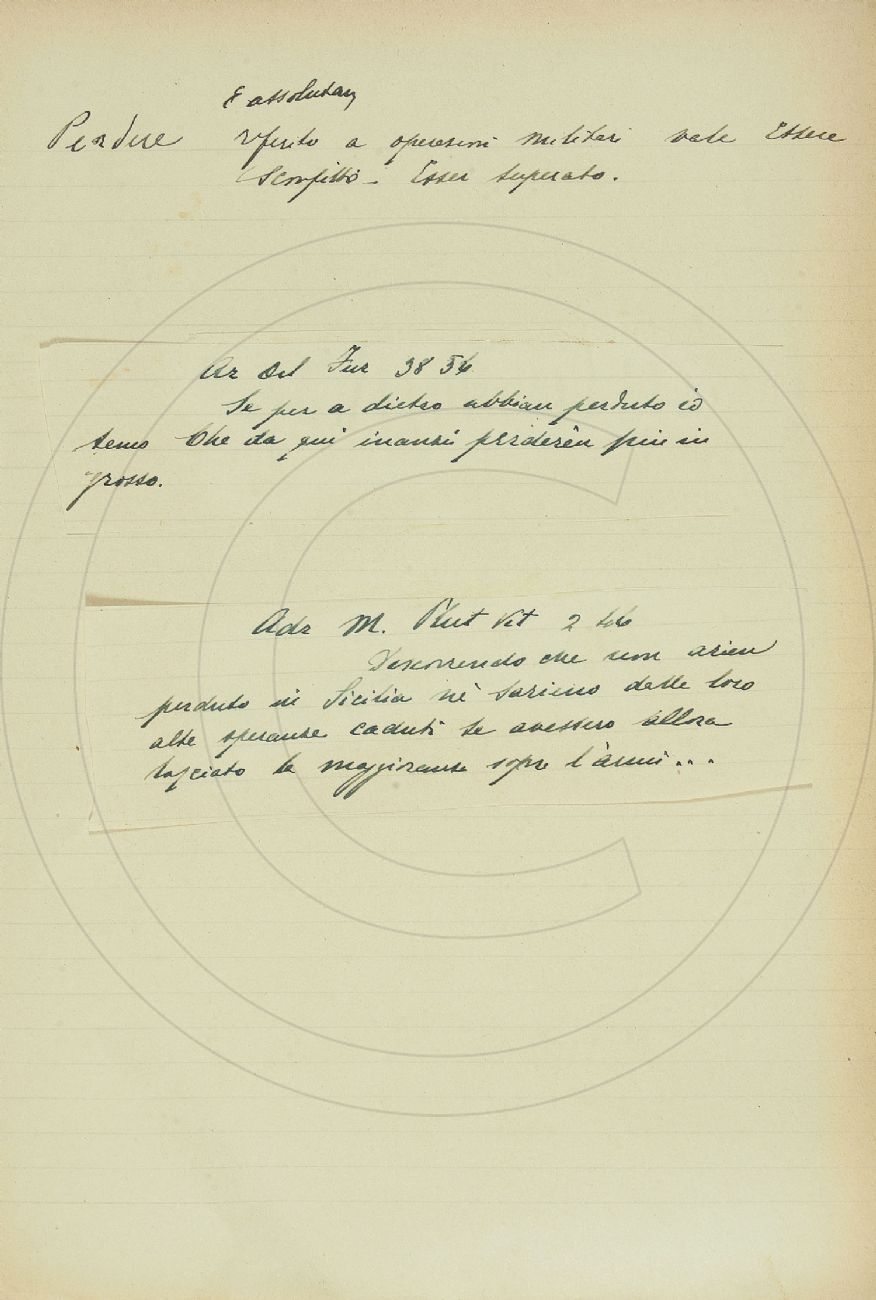 E assolutam
Perdere riferito a operazioni militari vale Essere
Sconfitto - Esser Superato.
Ar Orl Fur 38 54
Se per a dietro abbian perduto io
temo Che da qui inanzi perderèn piu in
grosso.
Adr M. Plut Vit 2 46
Discorrendo che non arien
perduto in Sicilia nè sarieno dalle loro
alte speranze caduti se avessero allora
lasciato la maggioranza sopra l'armi...